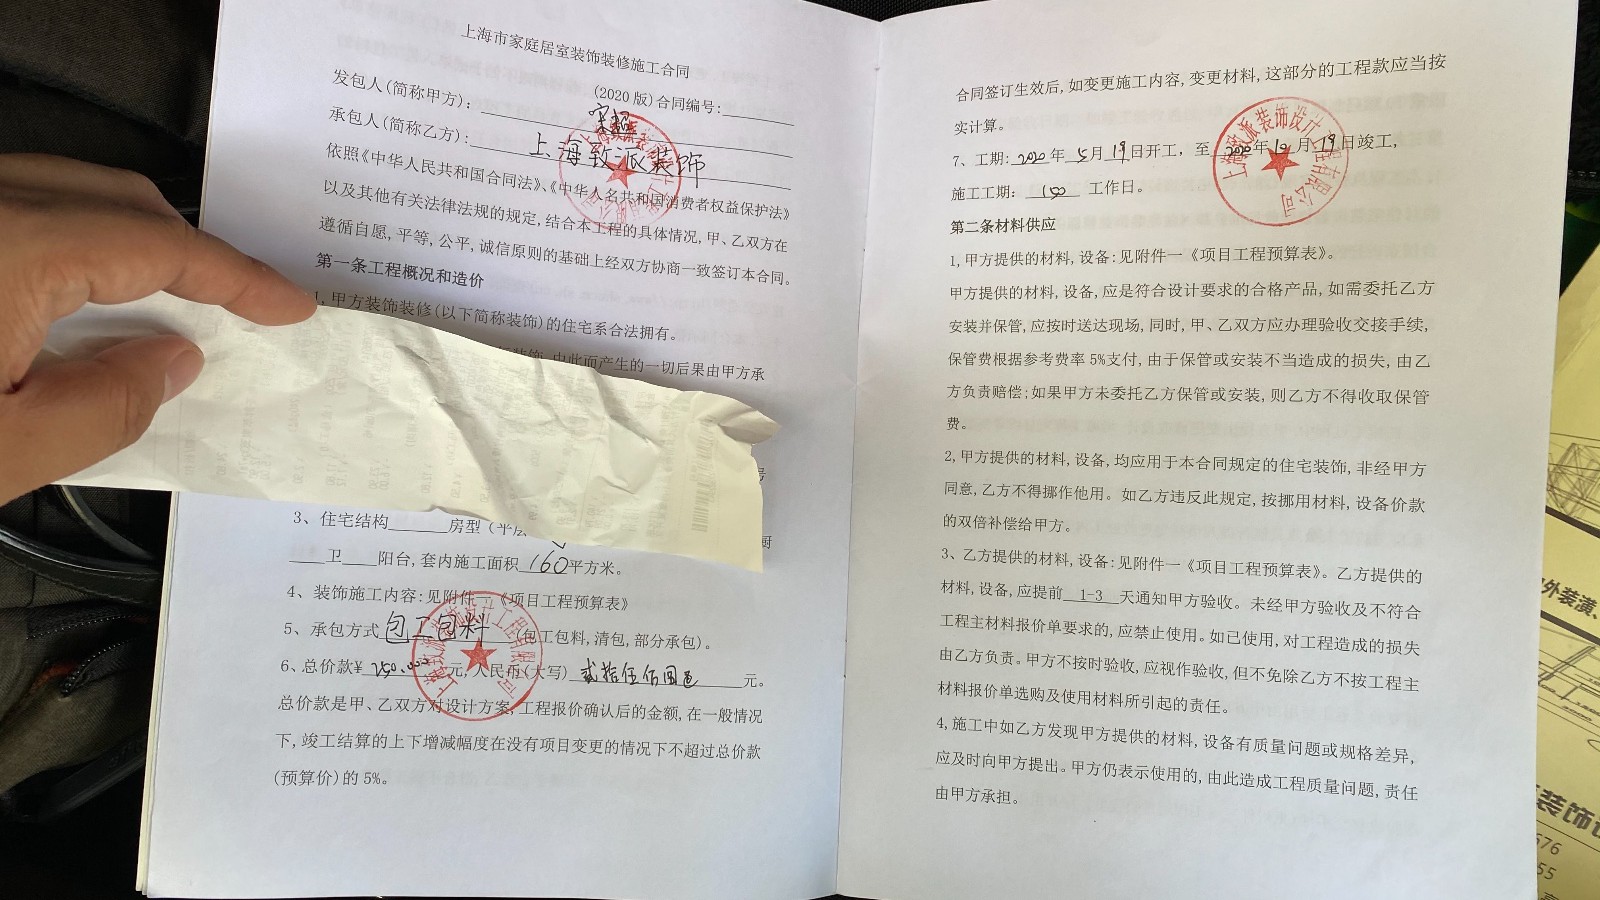 上海市家庭居室装饰装修施工合同
(2020 版)合同编号:
发包人(简称甲方):
承包人(简称乙方): 上海致派装饰
依照《中华人民共和国合同法》、《中华人名共和国消费者权益保护法》
以及其他有关法律法规的规定,结合本工程的具体情况,甲、乙双方在
遵循自愿,平等,公平,诚信原则的基础上经双方协商一致签订本合同。
第一条工程概况和造价
1,甲方装饰装修(以下简称装饰)的住宅系合法拥有。
由此而产生的一切后果由甲方承
号
3、住宅结构 房型(平层 厨
卫 阳台,套内施工面积 160 平方米。
4、装饰施工内容:见附件一《项目工程预算表》
5、承包方式 包工包料 (包工包料,清包,部分承包)。
6、总价款¥ 250.000 元,人民币(大写) 元。
总价款是甲、乙双方对设计方案,工程报价确认后的金额,在一般情况
下,竣工结算的上下增减幅度在没有项目变更的情况下不超过总价款
(预算价)的 5%。
合同签订生效后,如变更施工内容,变更材料,这部分的工程款应当按
实计算。
7、工期: 2020 年 5 月 19 日开工,至 2020 年 10 月 19 日竣工,
施工工期: 150 工作日。
上海致派装饰设计工程有限公司
第二条材料供应
1,甲方提供的材料,设备:见附件一《项目工程预算表》。
甲方提供的材料,设备,应是符合设计要求的合格产品,如需委托乙方
安装并保管,应按时送达现场,同时,甲、乙双方应办理验收交接手续,
保管费根据参考费率 5%支付,由于保管或安装不当造成的损失,由乙
方负责赔偿;如果甲方未委托乙方保管或安装,则乙方不得收取保管
费。
2,甲方提供的材料,设备,均应用于本合同规定的住宅装饰,非经甲方
同意,乙方不得挪作他用。如乙方违反此规定,按挪用材料,设备价款
的双倍补偿给甲方。
3、乙方提供的材料,设备:见附件一《项目工程预算表》。乙方提供的
材料,设备,应提前 1-3 天通知甲方验收。未经甲方验收及不符合
工程主材料报价单要求的,应禁止使用。如已使用,对工程造成的损失
由乙方负责。甲方不按时验收,应视作验收,但不免除乙方不按工程主
材料报价单选购及使用材料所引起的责任。
4,施工中如乙方发现甲方提供的材料,设备有质量问题或规格差异,
应及时向甲方提出。甲方仍表示使用的,由此造成工程质量问题,责任
由甲方承担。
外装潢、
装饰设
676
55